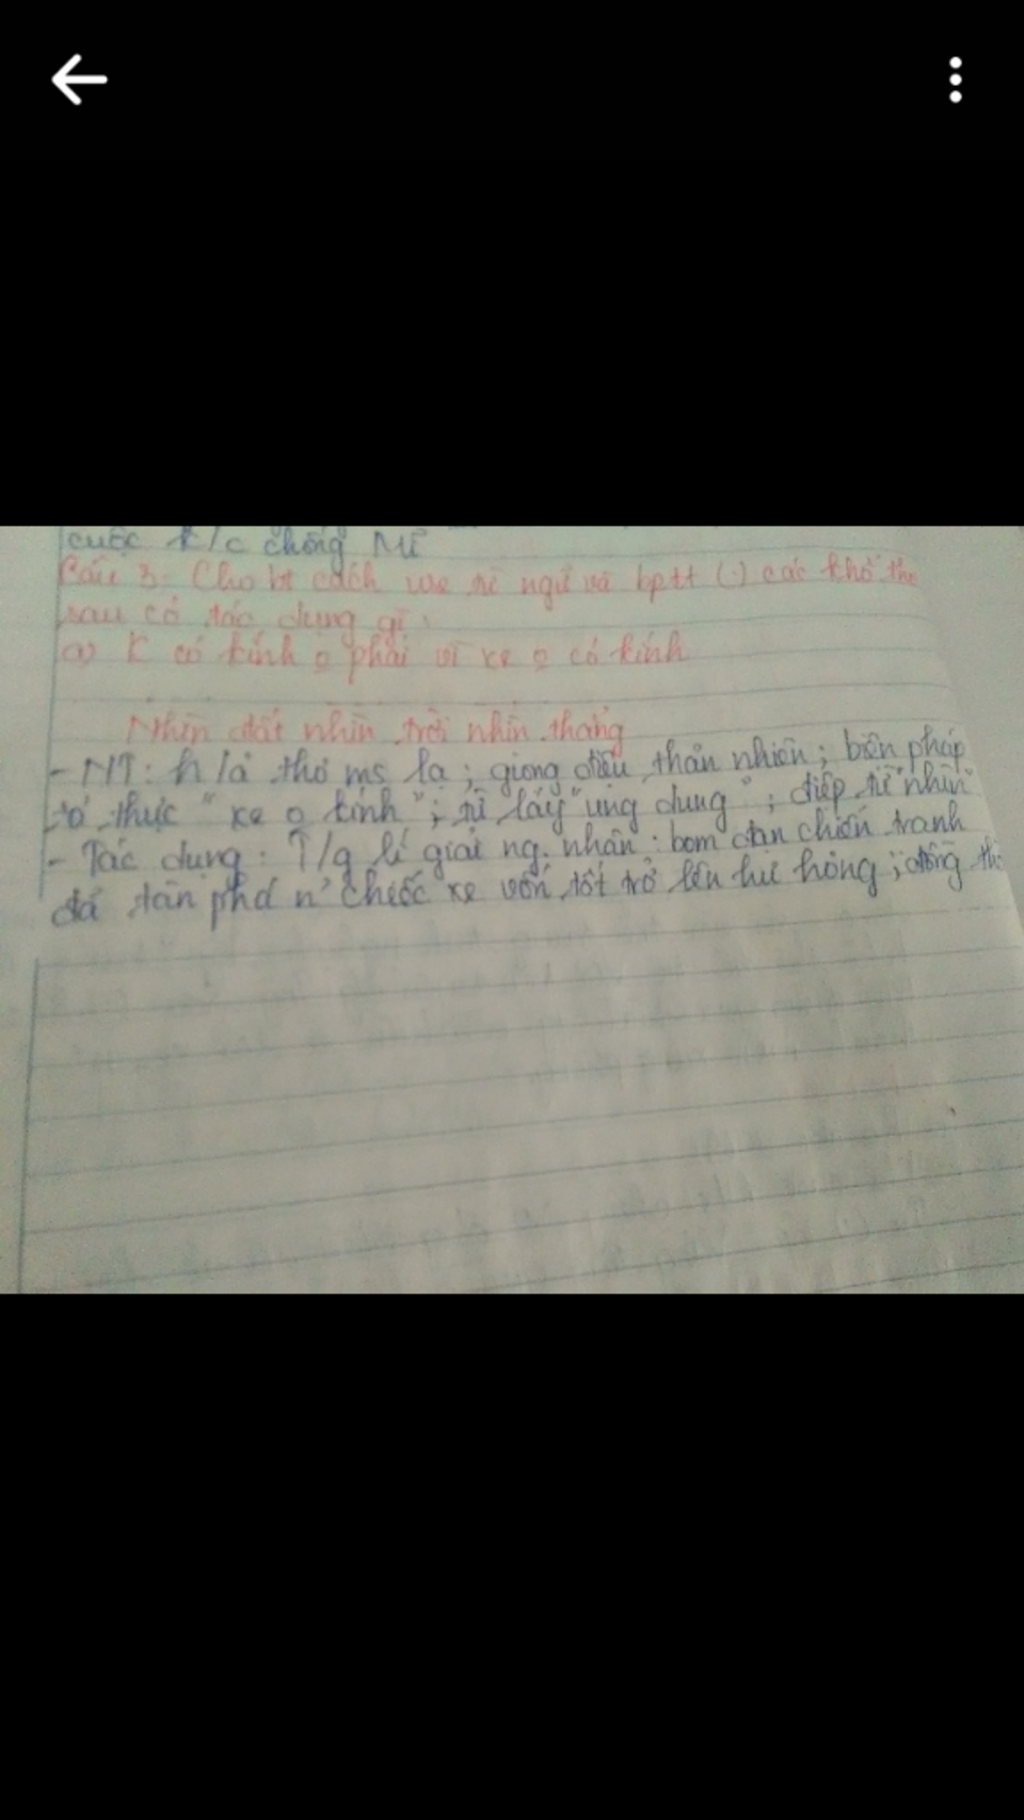 cuộc k/c chống Mĩ
Câu 3: Cho bt cách từ ngữ và bptt (.) các khổ thơ
sau có tác dụng gì
a) K có kính o phải vì xe o có kính
Nhìn đất nhìn trời nhìn thẳng
- NT: h/ả thơ ms lạ; giọng điệu thản nhiên; biện pháp
tả thực "xe o kính"; từ láy "ung dung"; điệp từ "nhìn"
- Tác dụng: T/g lí giải ng. nhân: bom đạn chiến tranh
đã tàn phá n' chiếc xe vốn tốt trở lên hư hỏng; đồng th